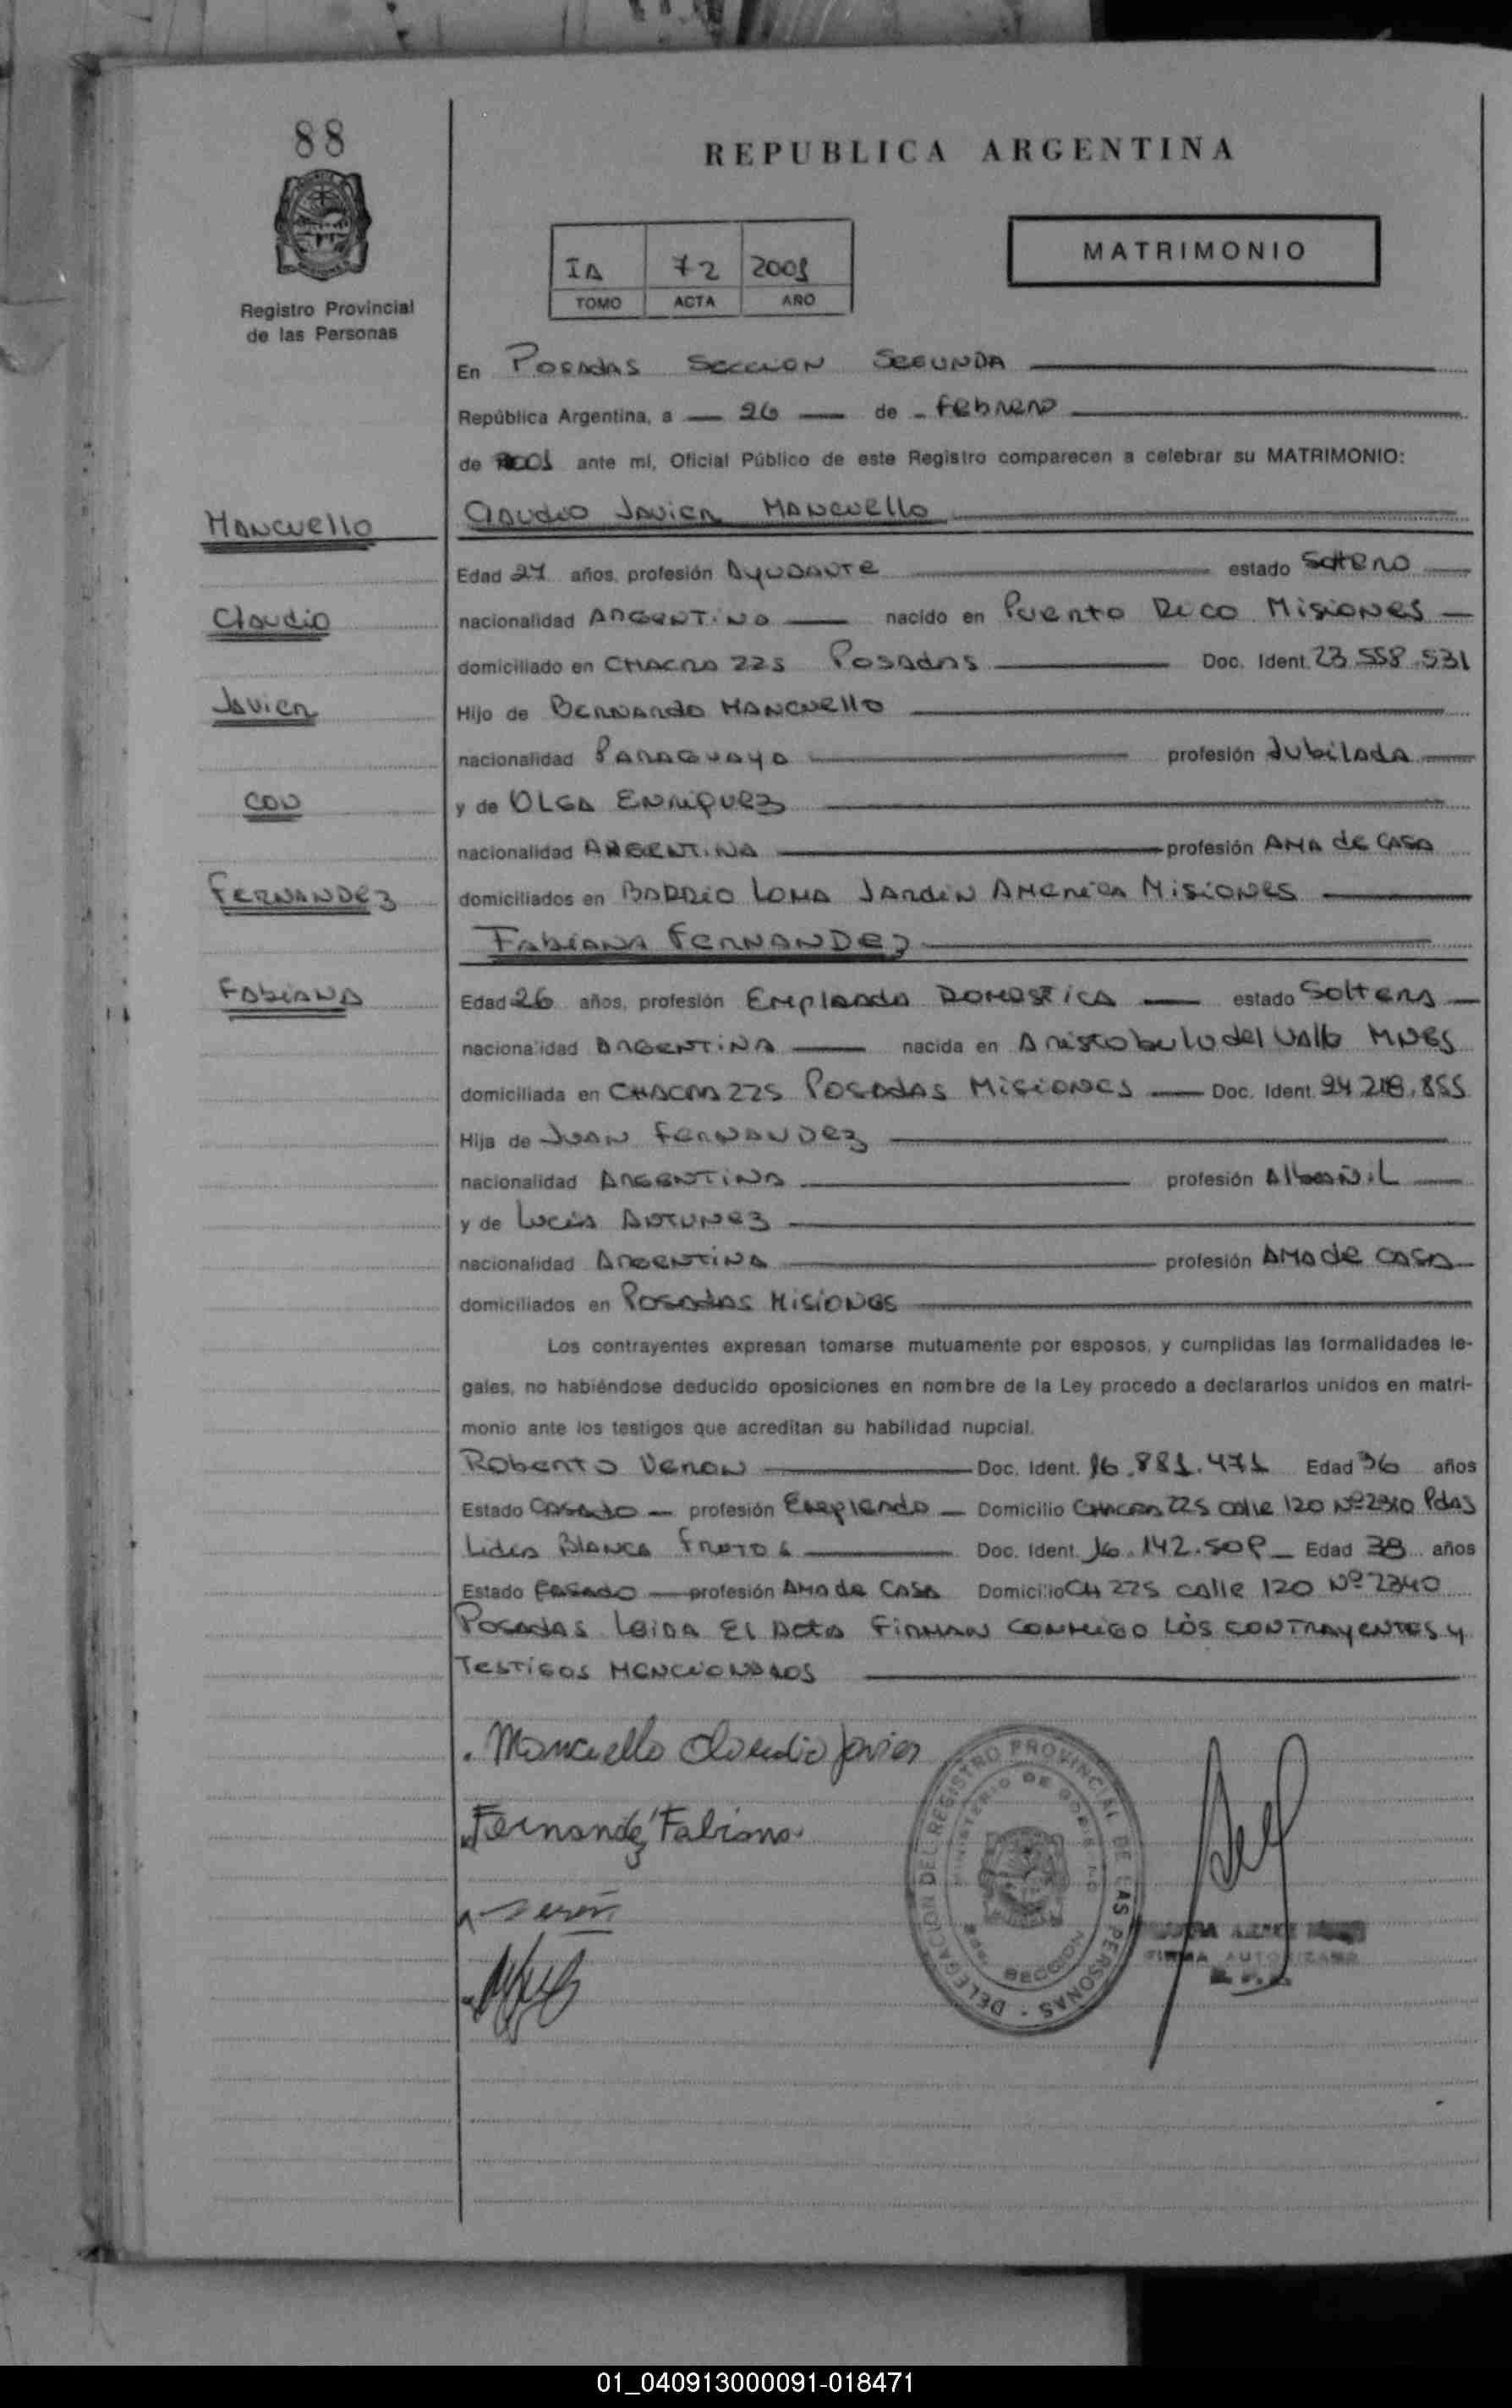 88
REPUBLICA ARGENTINA
IA 72 2001
TOMO ACTA AÑO
MATRIMONIO
Registro Provincial
de las Personas
En Posadas Seccion Segunda
República Argentina, a 26 de febrero
de 2001 ante mí, Oficial Público de este Registro comparecen a celebrar su MATRIMONIO:
Mancuello
Claudio Javier Mancuello
Edad 27 años, profesión Ayudante estado Soltero
Claudio
nacionalidad Argentina nacido en Puerto Rico Misiones
domiciliado en Chacra 225 Posadas Doc. Ident. 23.558.531
Javier
Hijo de Bernardo Mancuello
nacionalidad Paraguaya profesión Jubilada
con
y de Olga Enriquez
nacionalidad Argentina profesión Ama de Casa
Fernandez
domiciliados en Barrio Loma Jardin America Misiones
Fabiana Fernandez
Fabiana
Edad 26 años, profesión Empleada Domestica estado Soltera
nacionalidad Argentina nacida en Aristobulo del Valle Mnes
domiciliada en Chacra 225 Posadas Misiones Doc. Ident. 24.218.855
Hija de Juan Fernandez
nacionalidad Argentina profesión Albañil
y de Lucia Antunez
nacionalidad Argentina profesión Ama de Casa
domiciliados en Posadas Misiones
Los contrayentes expresan tomarse mutuamente por esposos, y cumplidas las formalidades le-
gales, no habiéndose deducido oposiciones en nombre de la Ley procedo a declararlos unidos en matri-
monio ante los testigos que acreditan su habilidad nupcial.
Roberto Veron Doc. Ident. 16.881.471 Edad 36 años
Estado Casado profesión Empleado Domicilio Chacra 225 calle 120 Nº 2340 Pdas
Lidia Blanca Doc. Ident. 16.142.509 Edad 38 años
Estado Casado profesión Ama de Casa Domicilio CH 225 calle 120 Nº 2340
Posadas Leida El Acta Firman conmigo los contrayentes y
Testigos Mencionados
Mancuello Claudio Javier
Fernandez Fabiana
Veron
DELEGACION DEL REGISTRO PROVINCIAL DE LAS PERSONAS
MINISTERIO DE GOBIERNO
SECCION
FIRMA AUTORIZADA
01_040913000091-018471